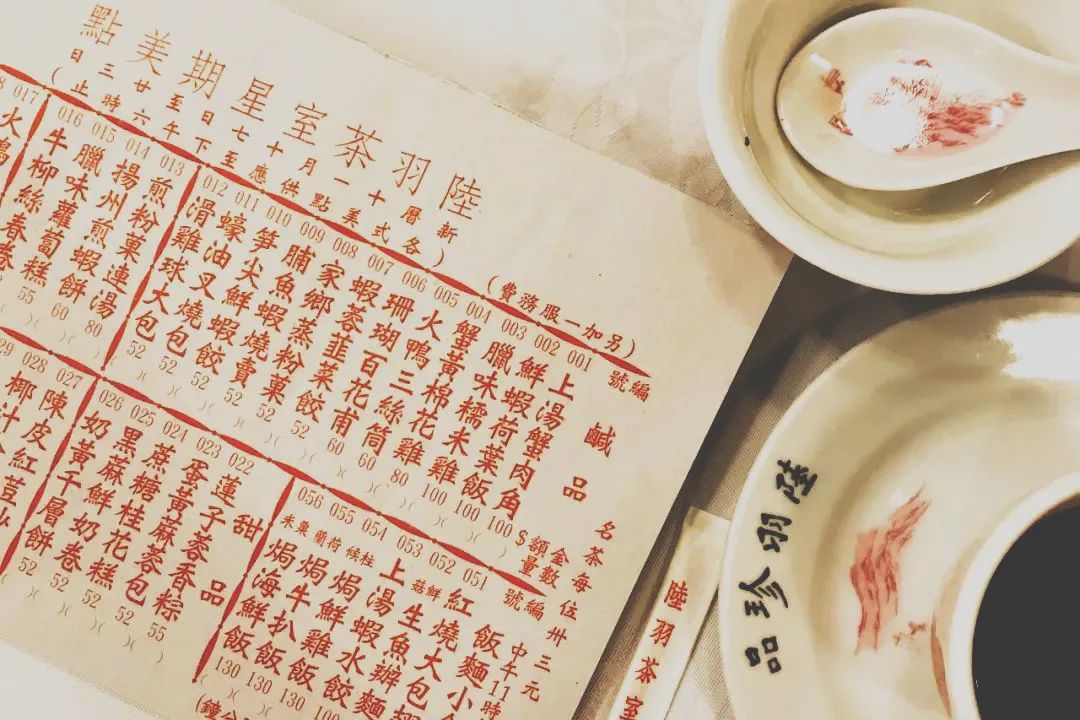 陸羽茶室星期美點
新曆十一月十七日至廿三日
(各式美點供應至下午六時止)
(另加一服務費)
編號
鹹品
001 上湯蟹肉角 100
002 鮮蝦荷葉飯 100
003 臘味糯米雞 100
004 蟹黃棉花雞 80
005 火鴨三絲筒 60
006 珊瑚百花甫 60
007 蝦蓉韮菜餃 52
008 家鄉蒸粉菓 52
009 脯魚蝦燒賣 52
010 筍尖鮮蝦餃 52
011 蠔油叉燒包 52
012 滑雞球大包 52
013 煎粉菓連湯 80
014 揚州煎蝦餅 60
015 臘味蘿蔔糕 55
016 牛柳絲春卷
017 火鴨
名茶每位卅三元
金額$
數量
編號
飯麵小
中午11時
051 紅燒大包翅
052 鮮菇生魚
053 上湯蝦水餃
054 焗鮮雞飯 130
055 荷蘭焗牛扒飯 130
056 粟米焗海鮮飯 130
甜品
022 蓮子蓉香粽 55
023 蛋黃麻蓉包 52
024 蔗糖桂花糕 52
025 黑麻鮮奶卷 52
026 奶黃千層餅 52
027 陳皮紅荳沙
028 椰汁
陸羽茶室
陸羽珍品